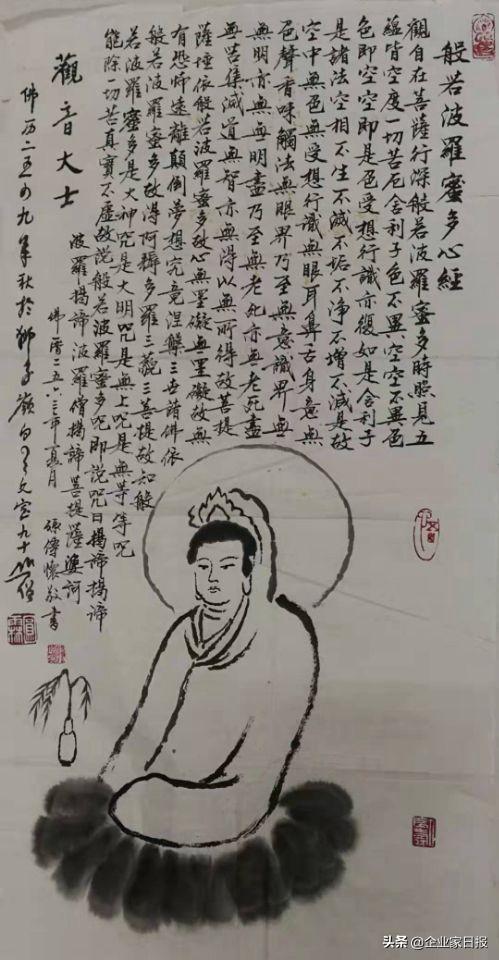 般若波羅蜜多心經
觀自在菩薩行深般若波羅蜜多時照見五
蘊皆空度一切苦厄舍利子色不異空空不異色
色即空空即是色受想行識亦復如是舍利子
是諸法空相不生不滅不垢不净不增不減是故
空中無色無受想行識無眼耳鼻舌身意無
色聲香味觸法無眼界乃至無意識界無
無明亦無無明盡乃至無老死亦無老死盡
無苦集滅道無智亦無得以無所得故菩提
薩埵依般若波羅蜜多故心無罣礙無罣礙故無
有恐怖遠離顛倒夢想究竟涅槃三世諸佛依
般若波羅蜜多故得阿耨多羅三藐三菩提故知般
若波羅蜜多是大神咒是大明咒是無上咒是無等等咒
能除一切苦真實不虛故說般若波羅蜜多咒即說咒曰揭諦揭諦
波羅揭諦波羅僧揭諦菩提薩婆訶
佛曆二五六三年夏月 傳懷敬書
觀音大士
佛历二五四九年秋於獅子嶺 九十
头条 @企业家日报